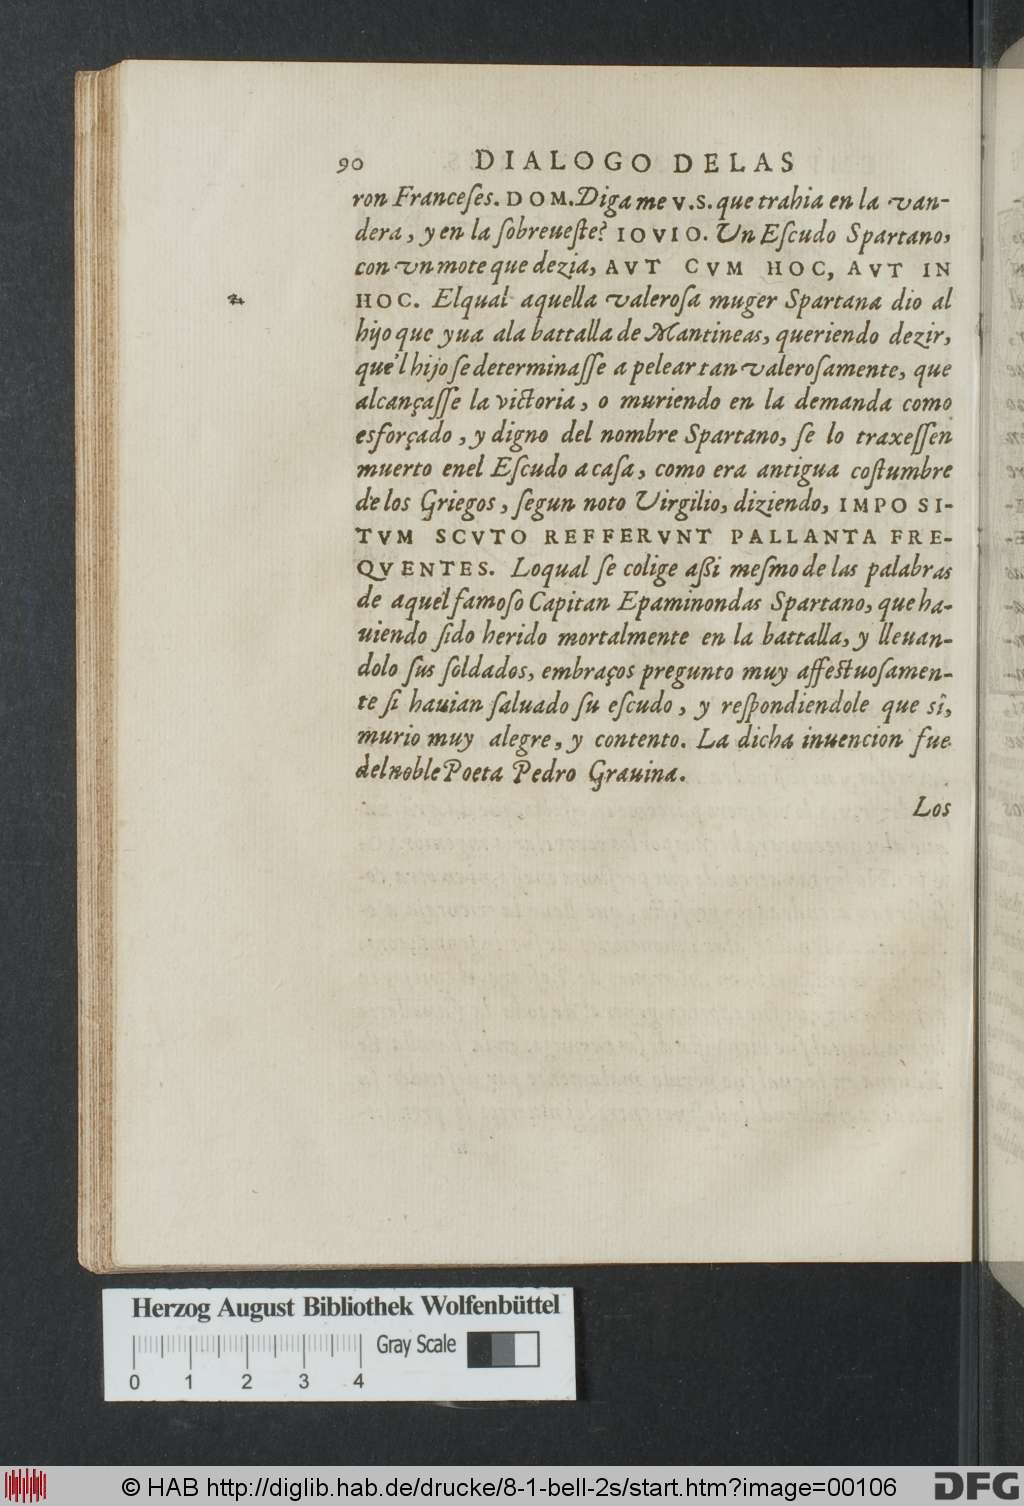 90 DIALOGO DELAS
ron Franceſes. DOM. Digame V.S. que trahia en la van-
dera, y en la ſobreueſte? IOVIO. Un Eſcudo Spartano,
con vn mote que dezia, AVT CVM HOC, AVT IN
HOC. Elqual aquella valeroſa muger Spartana dio al
hijo que yua ala battalla de Mantineas, queriendo dezir,
que'l hijo ſe determinaſſe a pelear tan valeroſamente, que
alcançaſſe la victoria, o muriendo en la demanda como
esforçado, y digno del nombre Spartano, ſe lo traxeſſen
muerto enel Eſcudo a caſa, como era antigua coſtumbre
de los Griegos, ſegun noto Virgilio, diziendo, IMPOSI-
TVM SCVTO REFFERVNT PALLANTA FRE-
QVENTES. Loqual ſe colige aßi meſmo de las palabras
de aquel famoſo Capitan Epaminondas Spartano, que ha-
uiendo ſido herido mortalmente en la battalla, y lleuan-
dolo ſus ſoldados, embraços pregunto muy affectuoſamen-
te ſi hauian ſaluado ſu eſcudo, y reſpondiendole que sî,
murio muy alegre, y contento. La dicha inuencion fue
del noble Poeta Pedro Grauina.
Los
Herzog August Bibliothek Wolfenbüttel
Gray Scale
0 1 2 3 4
© HAB http://diglib.hab.de/drucke/8-1-bell-2s/start.htm?image=00106
DFG